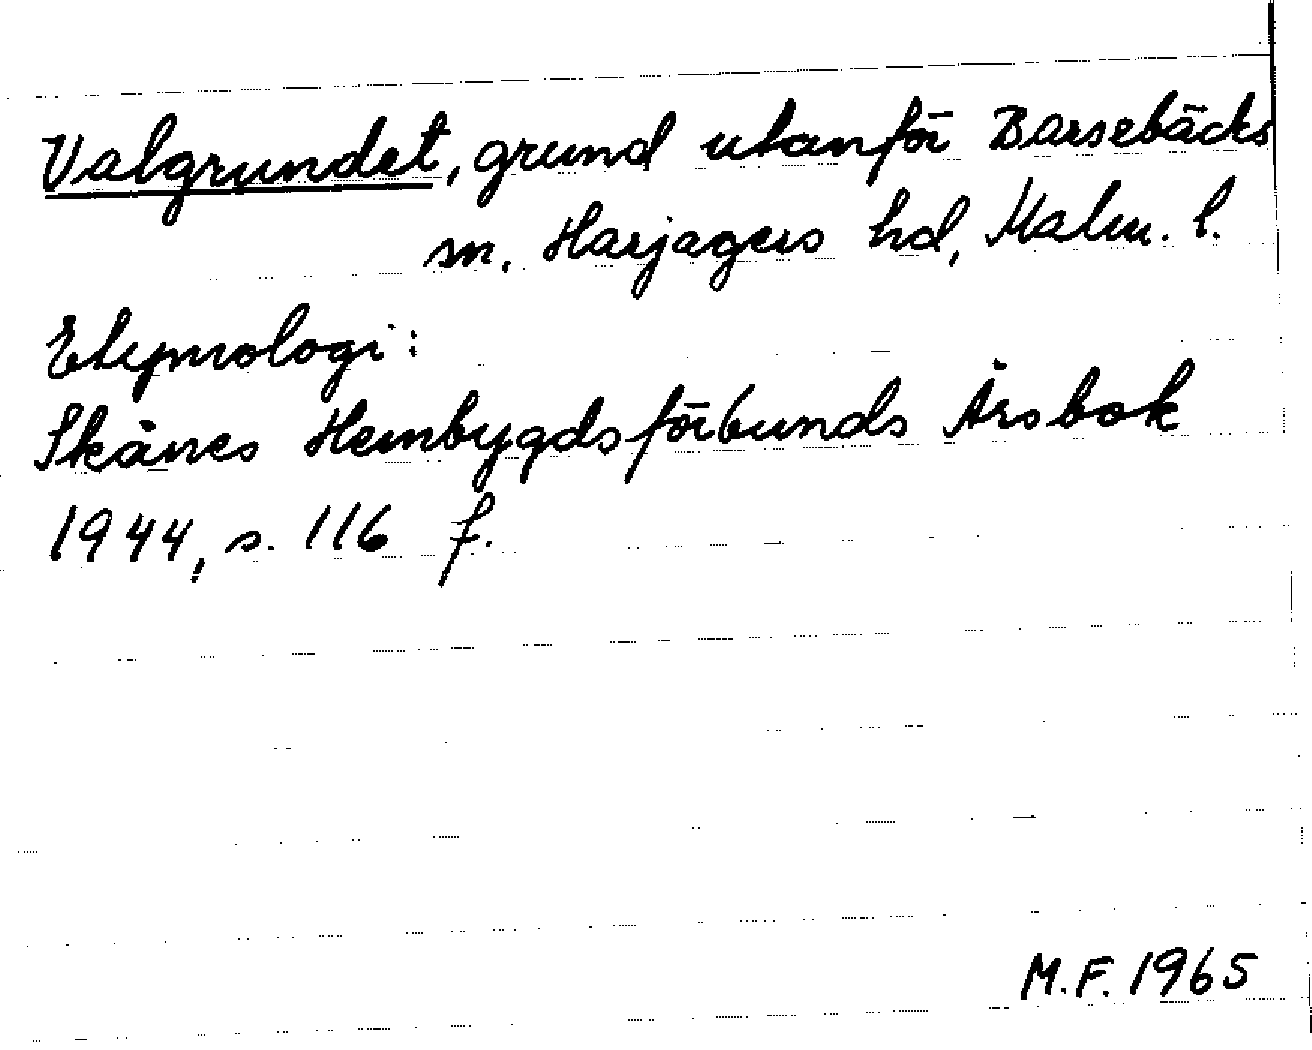 Valgrundet, grund utanför Barsebäcks
sn. Harjagers hd, Malm. l.
Etymologi:
Skånes Hembygdsförbunds Årsbok
1944, s. 116 f.
M.F. 1965